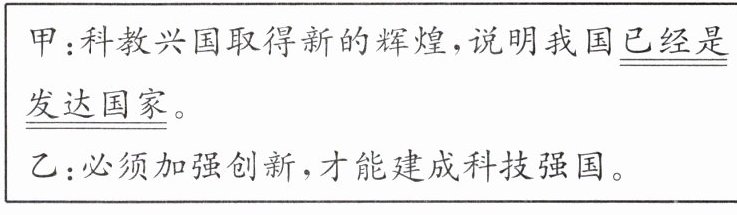 甲:科教兴国取得新的辉煌,说明我国已经是
发达国家。
乙:必须加强创新,才能建成科技强国。